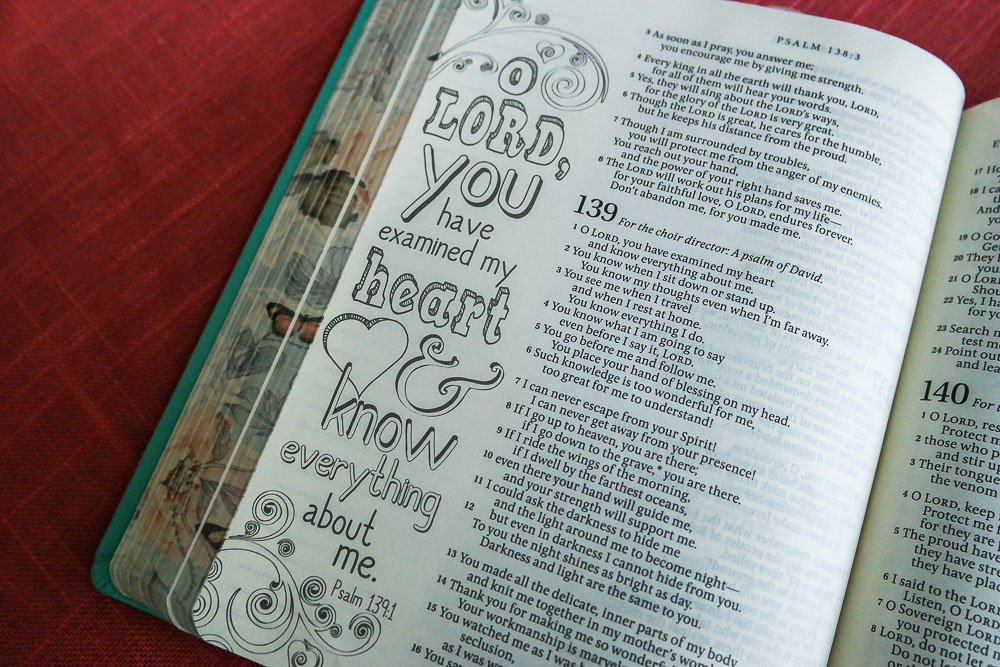 O
LORD,
YOU
have
examined my
heart
&
know
everything
about
me.
Psalm 139:1
PSALM 138:3
3 As soon as I pray, you answer me;
you encourage me by giving me strength.
4 Every king in all the earth will thank you, LORD,
for all of them will hear your words.
5 Yes, they will sing about the LORD's ways,
for the glory of the LORD is very great.
6 Though the LORD is great, he cares for the humble,
but he keeps his distance from the proud.
7 Though I am surrounded by troubles,
you will protect me from the anger of my enemies.
You reach out your hand,
and the power of your right hand saves me.
8 The LORD will work out his plans for my life—
for your faithful love, O LORD, endures forever.
Don't abandon me, for you made me.
139
For the choir director: A psalm of David.
1 O LORD, you have examined my heart
and know everything about me.
2 You know when I sit down or stand up.
You know my thoughts even when I'm far away.
3 You see me when I travel
and when I rest at home.
You know everything I do.
4 You know what I am going to say
even before I say it, LORD.
5 You go before me and follow me.
You place your hand of blessing on my head.
6 Such knowledge is too wonderful for me,
too great for me to understand!
7 I can never escape from your Spirit!
I can never get away from your presence!
8 If I go up to heaven, you are there;
if I go down to the grave,* you are there.
9 If I ride the wings of the morning,
if I dwell by the farthest oceans,
10 even there your hand will guide me,
and your strength will support me.
11 I could ask the darkness to hide me
and the light around me to become night—
12 but even in darkness I cannot hide from you.
To you the night shines as bright as day.
Darkness and light are the same to you.
13 You made all the delicate, inner parts of my body
and knit me together in my mother's womb.
14 Thank you for making me so wonderfully
Your workmanship is marvel
15 You watched me as I was
seclusion,
as I was w
16 You saw
17 Ho
18 I c
And
yo
19 O Go
Ge
20 They b
you
21 O LORD
Shou
22 Yes, I h
for yo
23 Search m
test me
24 Point out
and lea
140
For
1 O LORD, res
Protect m
2 those who p
and stir up
3 Their tongue
the venom
4 O LORD, keep
Protect me
for they are
5 The proud have
they have stre
they have plac
6 I said to the LORD
Listen, O LORD
7 O Sovereign LORD
you protected m
8 LORD, do not let
Do